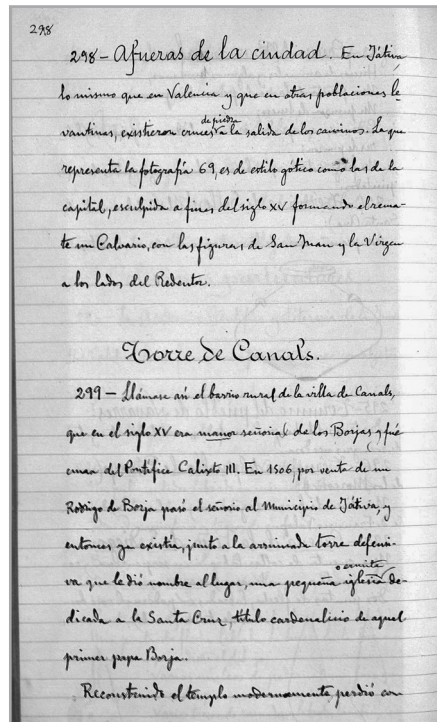 298
298 - Afueras de la ciudad. En Játiva
lo mismo que en Valencia y que en otras poblaciones le-
vantinas, existieron cruces de piedra a la salida de los caminos. La que
representa la fotografía 69, es de estilo gótico como las de la
capital, esculpida a fines del siglo XV formando el rema-
te un Calvario, con las figuras de San Juan y la Virgen
a los lados del Redentor.
Torre de Canals.
299 - Llámase así el barrio rural de la villa de Canals,
que en el siglo XV era manor señorial de los Borjas y fué
cuna del Pontífice Calixto III. En 1506, por venta de un
Rodrigo de Borja pasó el señorio al Municipio de Játiva, y
entonces ya existia, junto a la arruinada torre defensi-
va que le dió nombre al lugar, una pequeña iglesia o ermita de-
dicada a la Santa Cruz, título cardenalicio de aquel
primer papa Borja.
Reconstruido el templo modernamente, perdió con